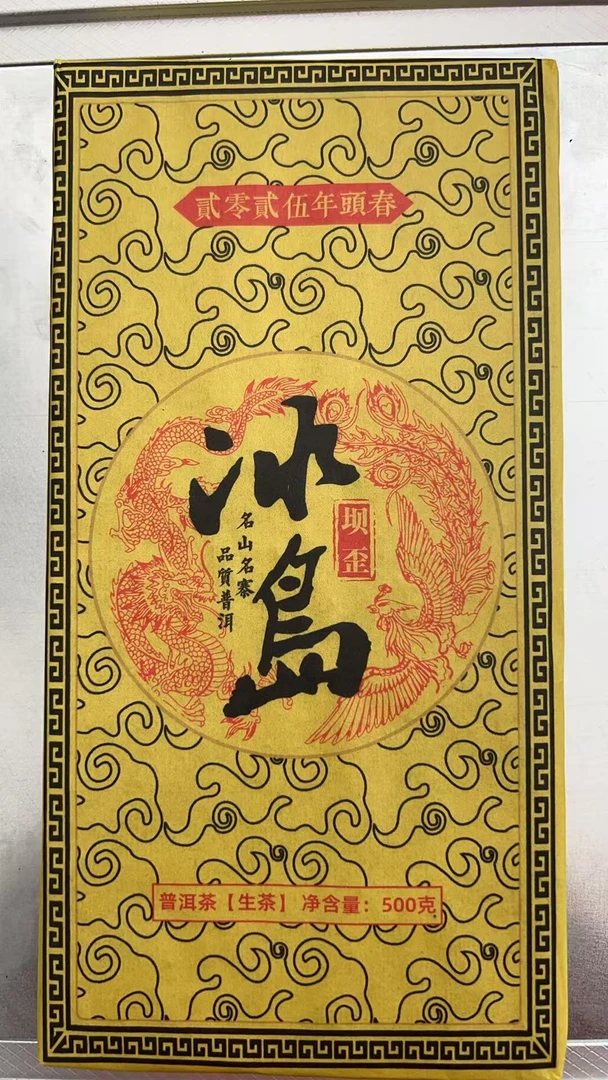 貳零貳伍年頭春
冰島
坝歪
名山名寨
品質普洱
普洱茶【生茶】 净含量：500克